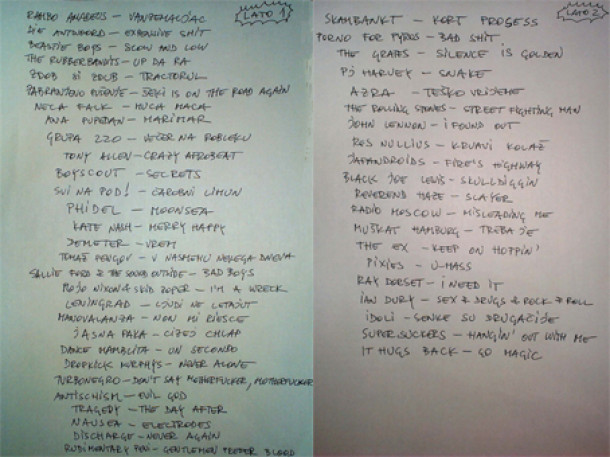 LATO 1
RAMBO AMADEUS – VANZEMALJAC
DIE ANTWOORD – EXPENSIVE SHIT
BEASTIE BOYS – SLOW AND LOW
THE RUBBERBANDITS – UP DA RA
ZDOB SI ZDUB – TRACTORUL
ZABRANJENO PUŠENJE – ŠEKI IS ON THE ROAD AGAIN
NECA FALK – MUCA MACA
ANA PUPEDAN – MARIMAR
GRUPA 220 – VEČER NA ROBLEKU
TONY ALLEN – CRAZY AFROBEAT
BOYSCOUT – SECRETS
SVI NA POD! – ČAROBNI LIMUN
PHIDEL – MOONSEA
KATE NASH – MERRY HAPPY
DEMETER – VREM
TOMAŽ PENGOV – V NASMEHU NEKEGA DNEVA
SALLIE FORD & THE SOUND OUTSIDE – BAD BOYS
MOJO NIXON & SKID ROPER – I'M A WRECK
LENINGRAD – LJUDI NE LETAJUT
MANOVALANZA – NON MI RIESCE
JASNA PAKA – CIZEJ CHLAP
DANCE MAMBLITA – UN SECONDO
DROPKICK MURPHYS – NEVER ALONE
TURBONEGRO – DON'T SAY MOTHERFUCKER, MOTHERFUCKER
ANTISCHISM – EVIL GOD
TRAGEDY – THE DAY AFTER
NAUSEA – ELECTRODES
DISCHARGE – NEVER AGAIN
RUDIMENTARY PENI – GENTLEMEN PREFER BLOOD
LATO 2
SKAMBANKT – KORT PROSESS
PORNO FOR PYROS – BAD SHIT
THE GRAPES – SILENCE IS GOLDEN
PJ HARVEY – SNAKE
AZRA – TEŠKO VRIJEME
THE ROLLING STONES – STREET FIGHTING MAN
JOHN LENNON – I FOUND OUT
RES NULLIUS – KRVAVI KOLAŽ
JAPANDROIDS – FIRE'S HIGHWAY
BLACK JOE LEWIS – SKULLDIGGIN
REVEREND HAZE – SLAYER
RADIO MOSCOW – MISLEADING ME
MUŠKAT HAMBURG – TREBA JE
THE EX – KEEP ON HOPPIN'
PIXIES – U-MASS
RAY DORSET – I NEED IT
IAN DURY – SEX & DRUGS & ROCK & ROLL
IDOLI – SENKE SU DRUGAČIJE
SUPERSUCKERS – HANGIN' OUT WITH ME
IT HUGS BACK – GO MAGIC